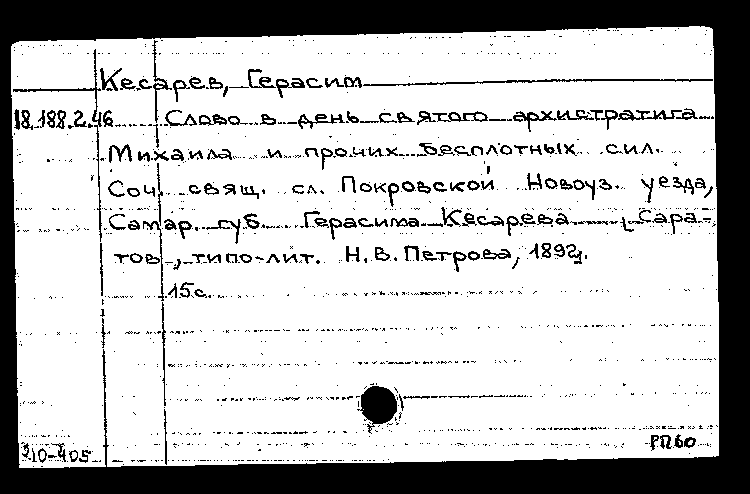 Кесарев, Герасим
18.188.2.46 Слово в день святого архистратига
Михаила и прочих бесплотных сил.
Соч. свящ. сл. Покровской Новоуз. уезда,
Самар. губ. Герасима Кесарева [Сара-
тов], типо-лит. Н.В. Петрова, 1892].
15с.
РП60